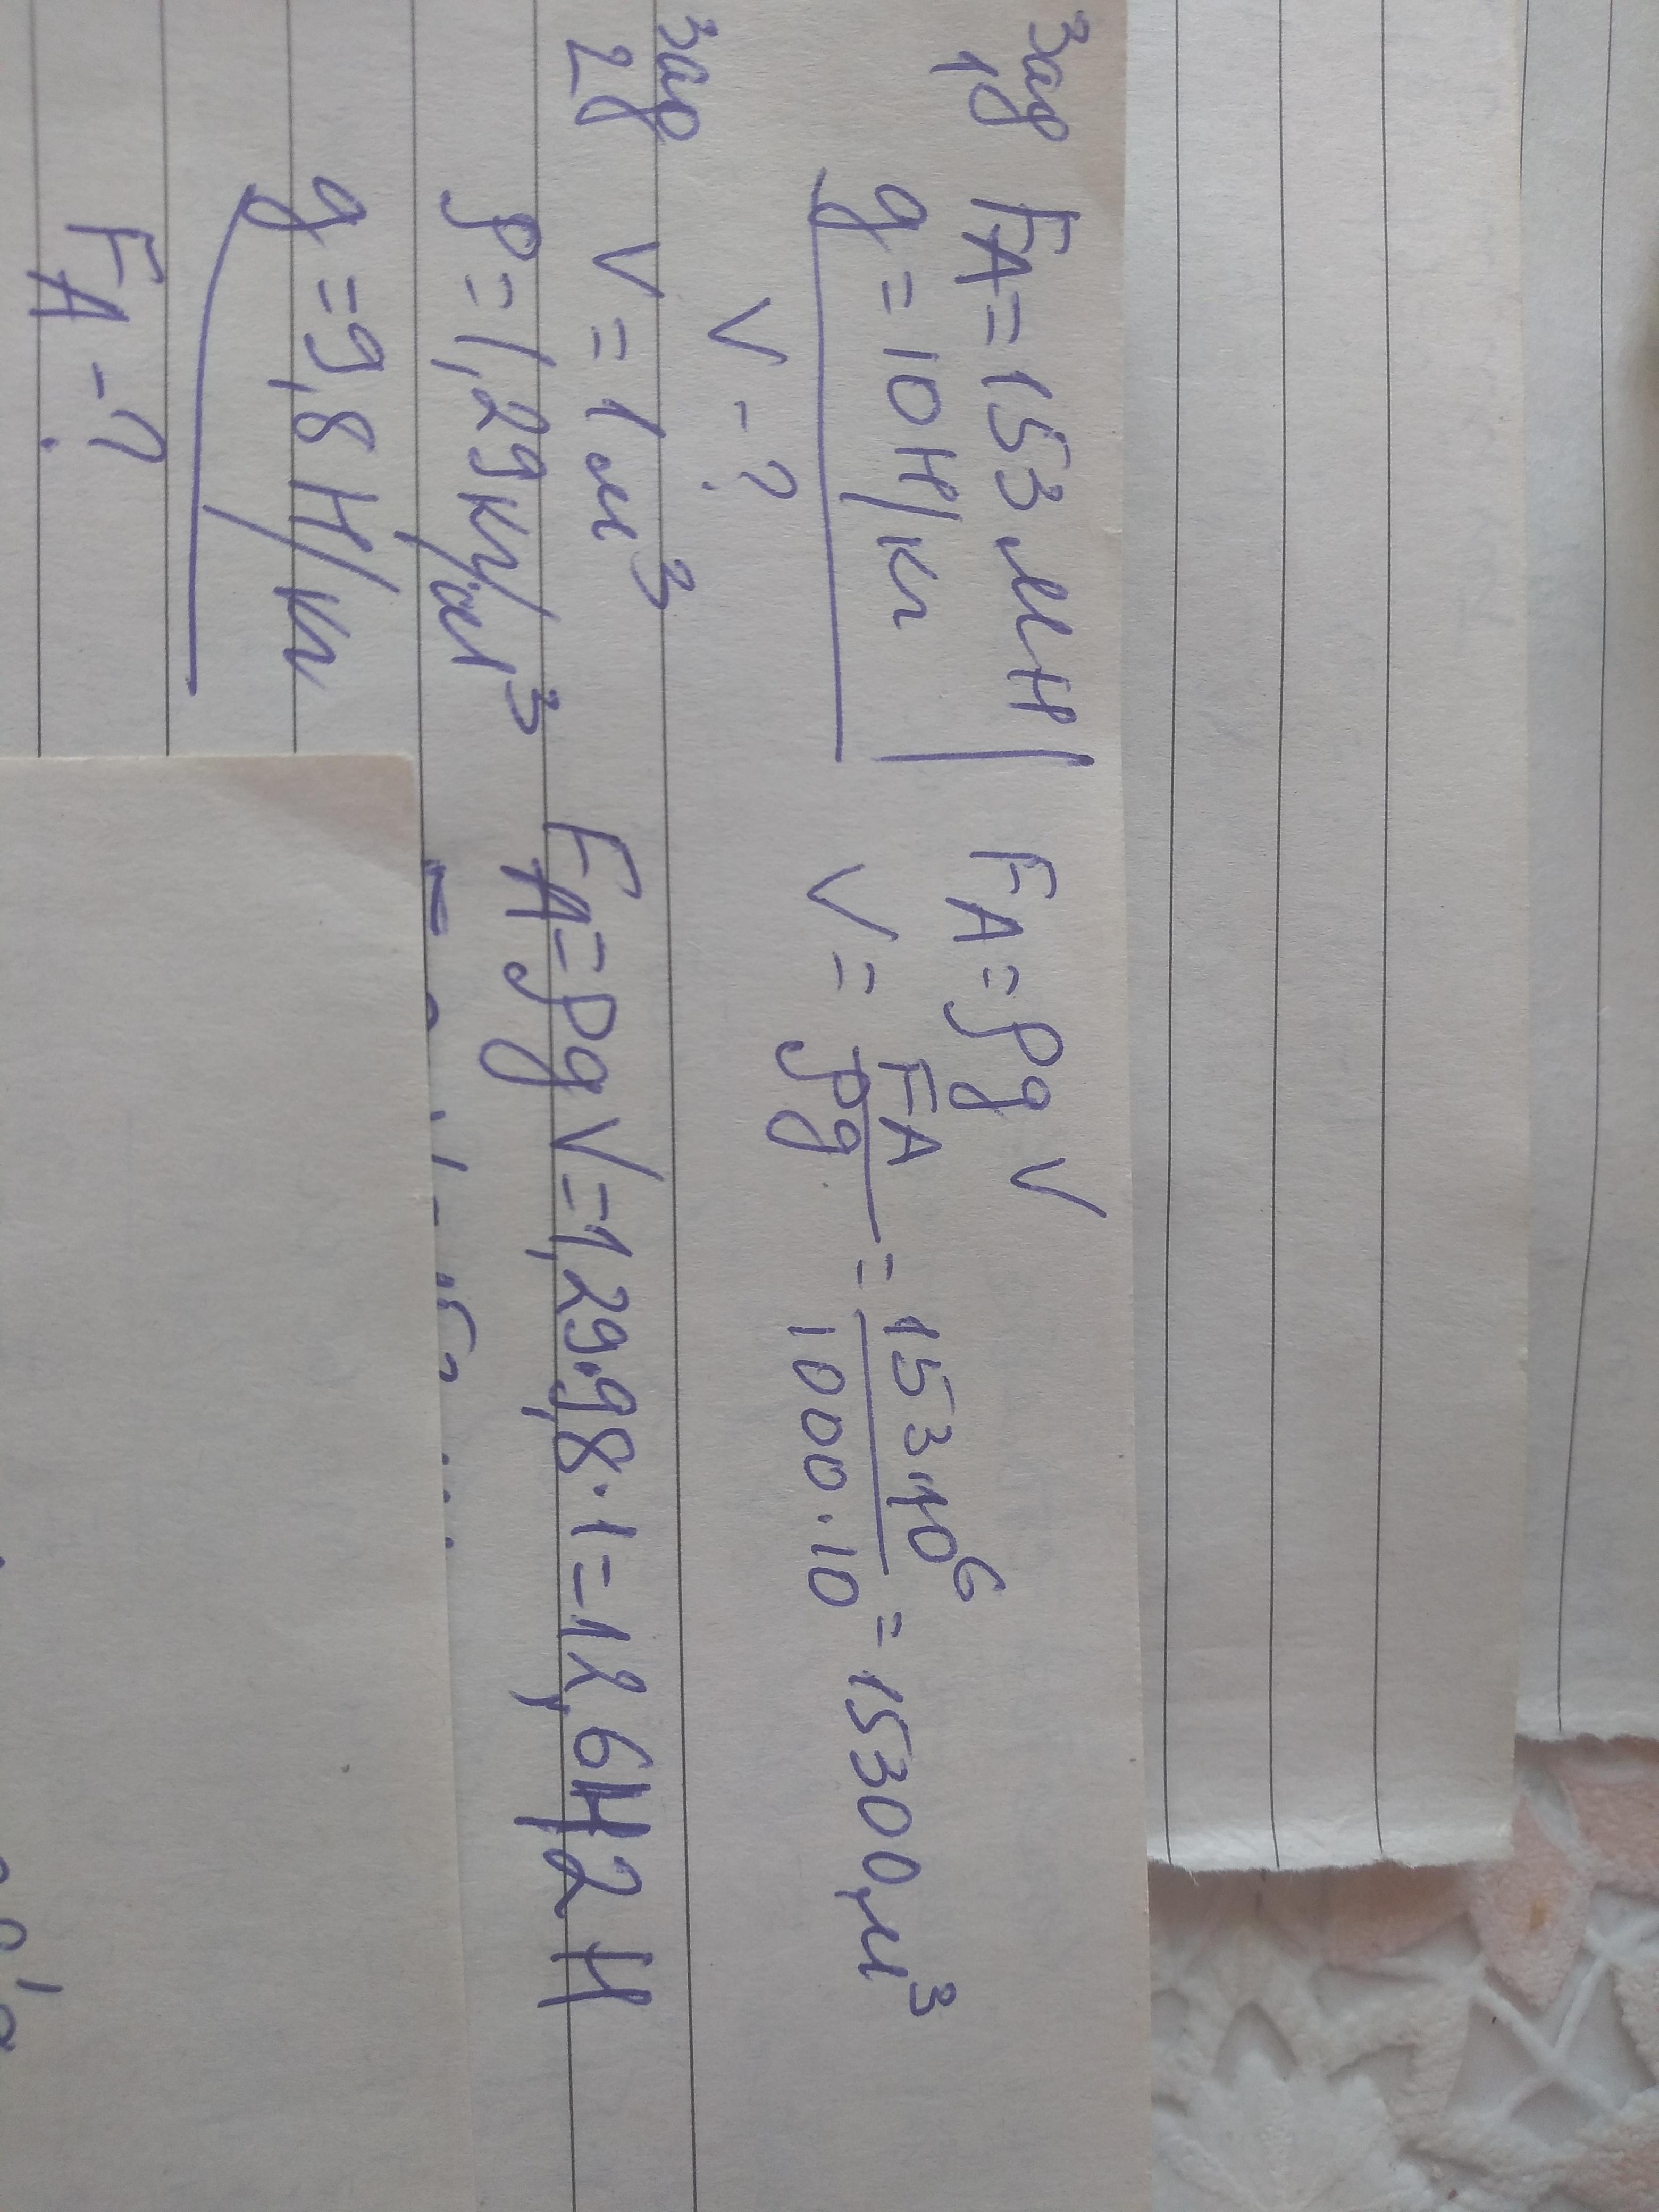 Зад 1
FA = 153 мН
g = 10 Н/кг
V - ?
FA = ρgV
V = FA/ρg = 153·10⁶/1000·10 = 15300 м³
Зад 28
V = 1 м³
ρ = 1,29 кг/м³
g = 9,8 Н/кг
FA - ?
FA = ρgV = 1,29·9,8·1 = 12,642 Н